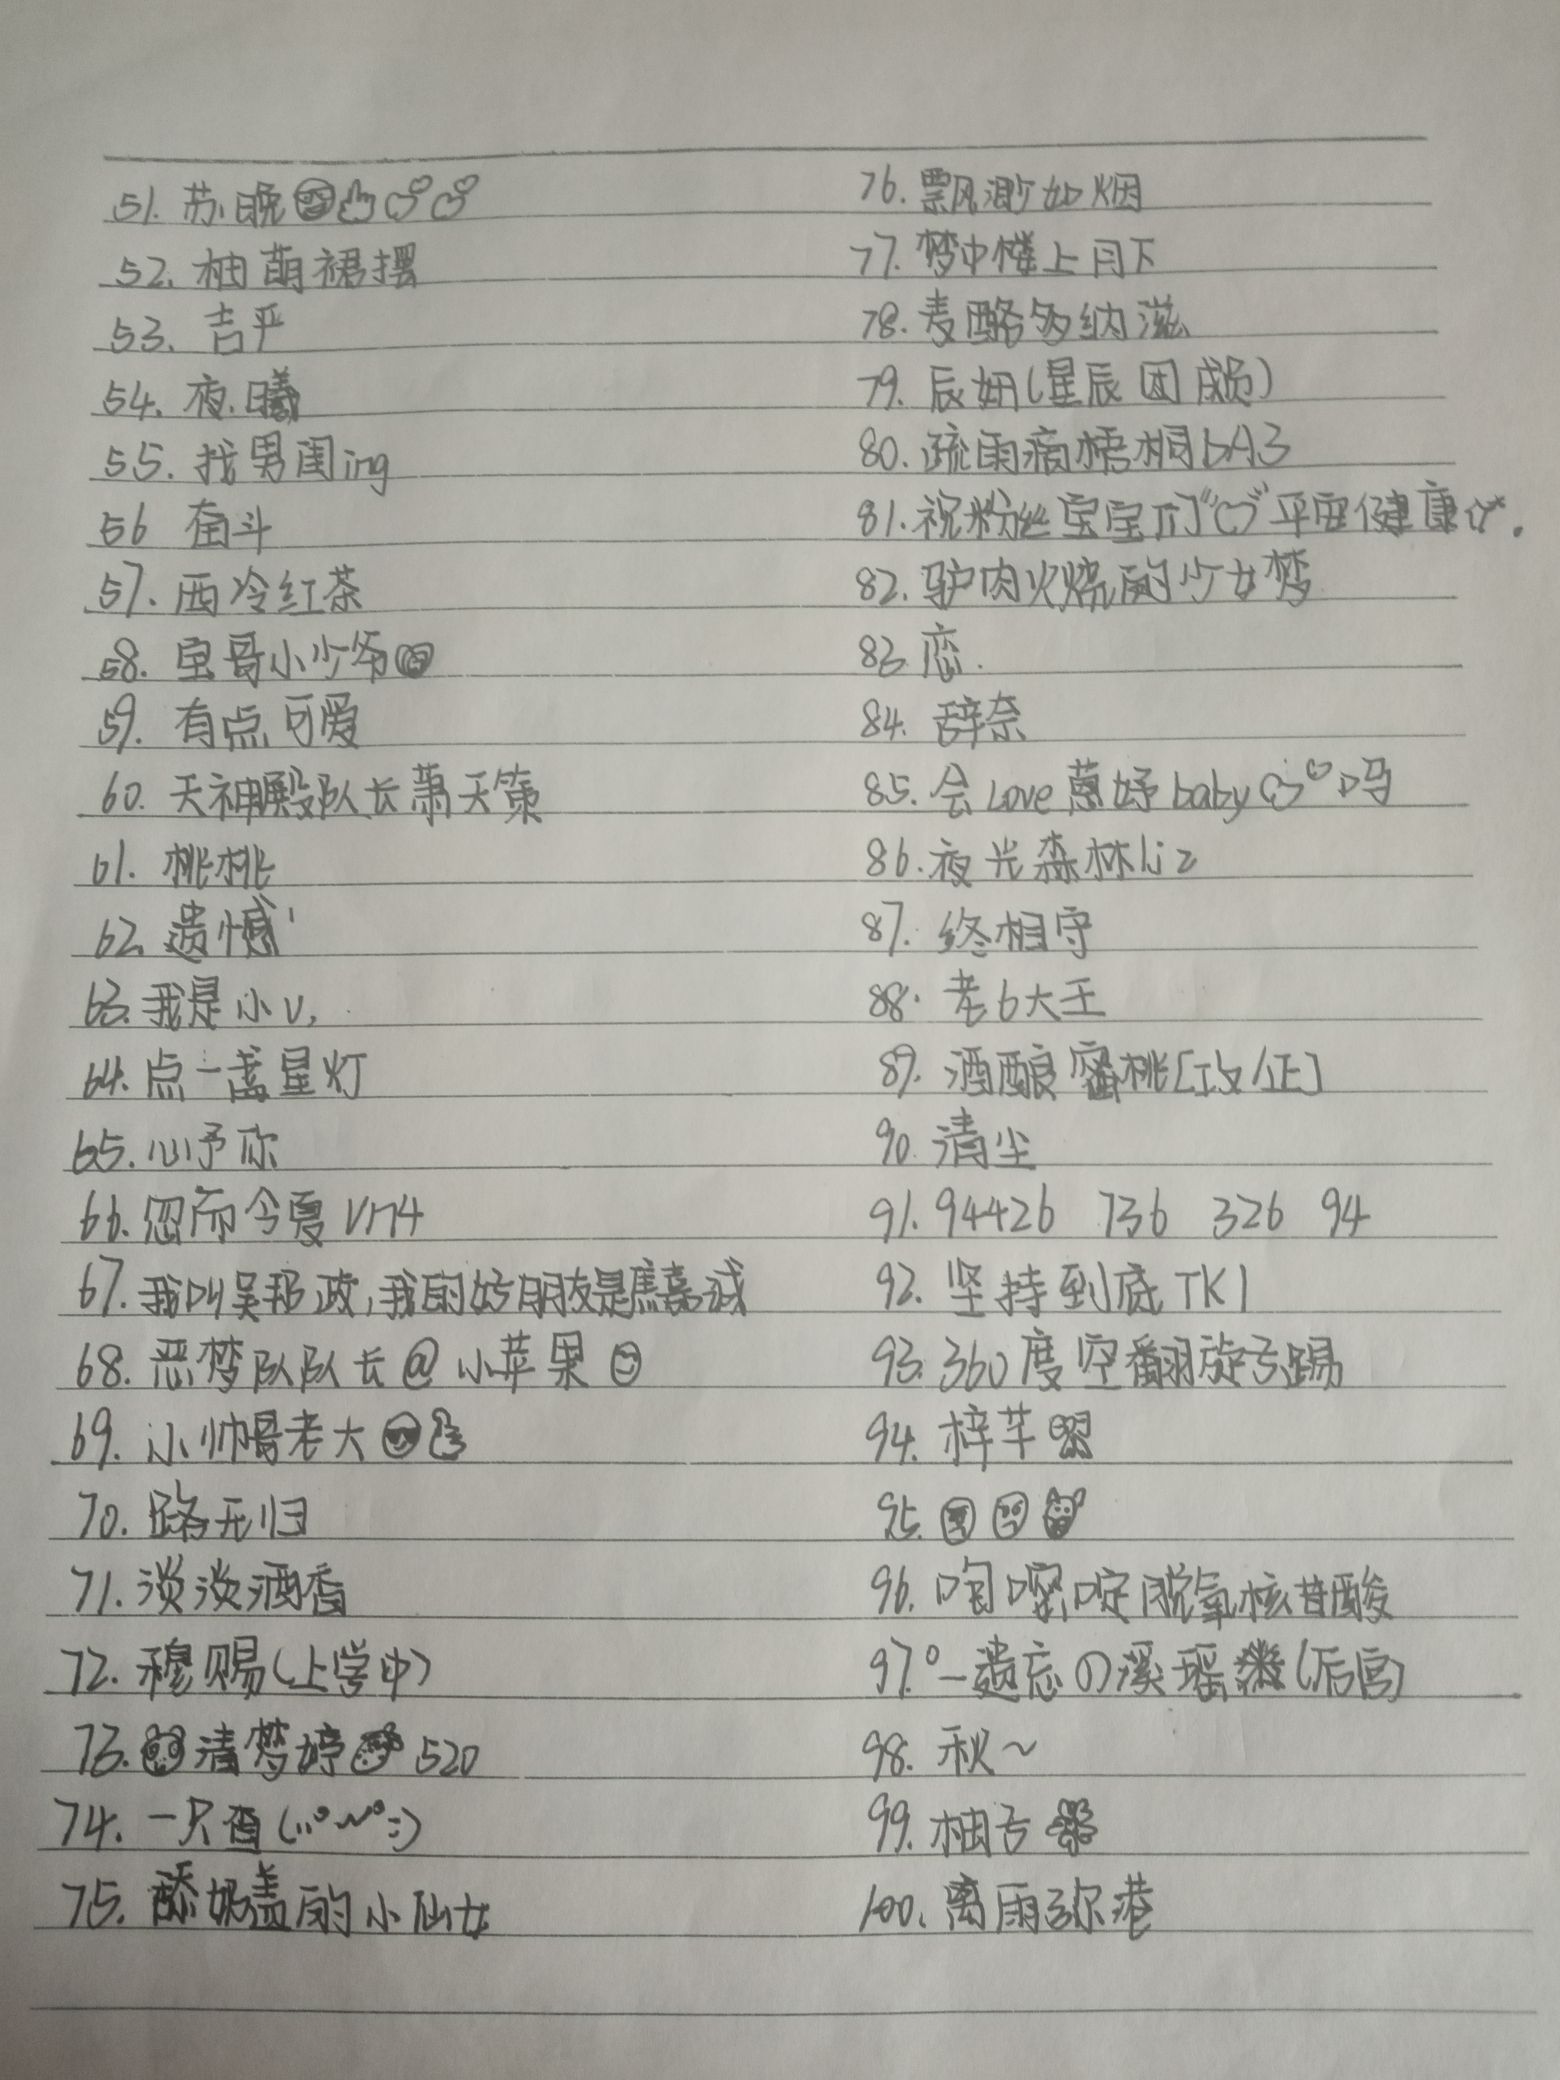 51. 苏晚
52. 柚萌裙摆
53. 吉平
54. 夜曦
55. 找男闺ing
56 奋斗
57. 西冷红茶
58. 宝哥小少爷
59. 有点可爱
60. 天神殿队长萧天策
61. 桃桃
62. 遗憾'
63. 我是小v,
64. 点一盏星灯
65. 心予你
66. 忽而今夏vn4
67. 我叫吴邦政,我的好朋友是焦嘉诚
68. 恶梦队队长@小苹果
69. 小帅哥老大
70. 路无归
71. 淡淡酒香
72. 穆赐(上学中)
73. 清梦婷 520
74. 一只香
75. 舔奶盖的小仙女
76. 飘渺如烟
77. 梦中楼上月下
78. 麦酪多纳滋
79. 辰妍(星辰团成员)
80. 疏雨滴梧桐bA3
81. 祝粉丝宝宝们“♡”平安健康☆.
82. 驴肉火烧的少女梦
83. 恋.
84. 辞奈
85. 会Love蒽妤baby 吗
86. 夜光森林liz
87. 终相守
88. 老6大王
89. 酒酿蜜桃[攻/正]
90. 清尘
91. 94426 736 326 94
92. 坚持到底TK1
93. 360度空翻旋弓踢
94. 梓芊
95.
96. 胞嘧啶脱氧核苷酸
97. °一遗忘の溪瑶 (后宫)
98. 秋~
99. 柚舌
100. 离雨弥港